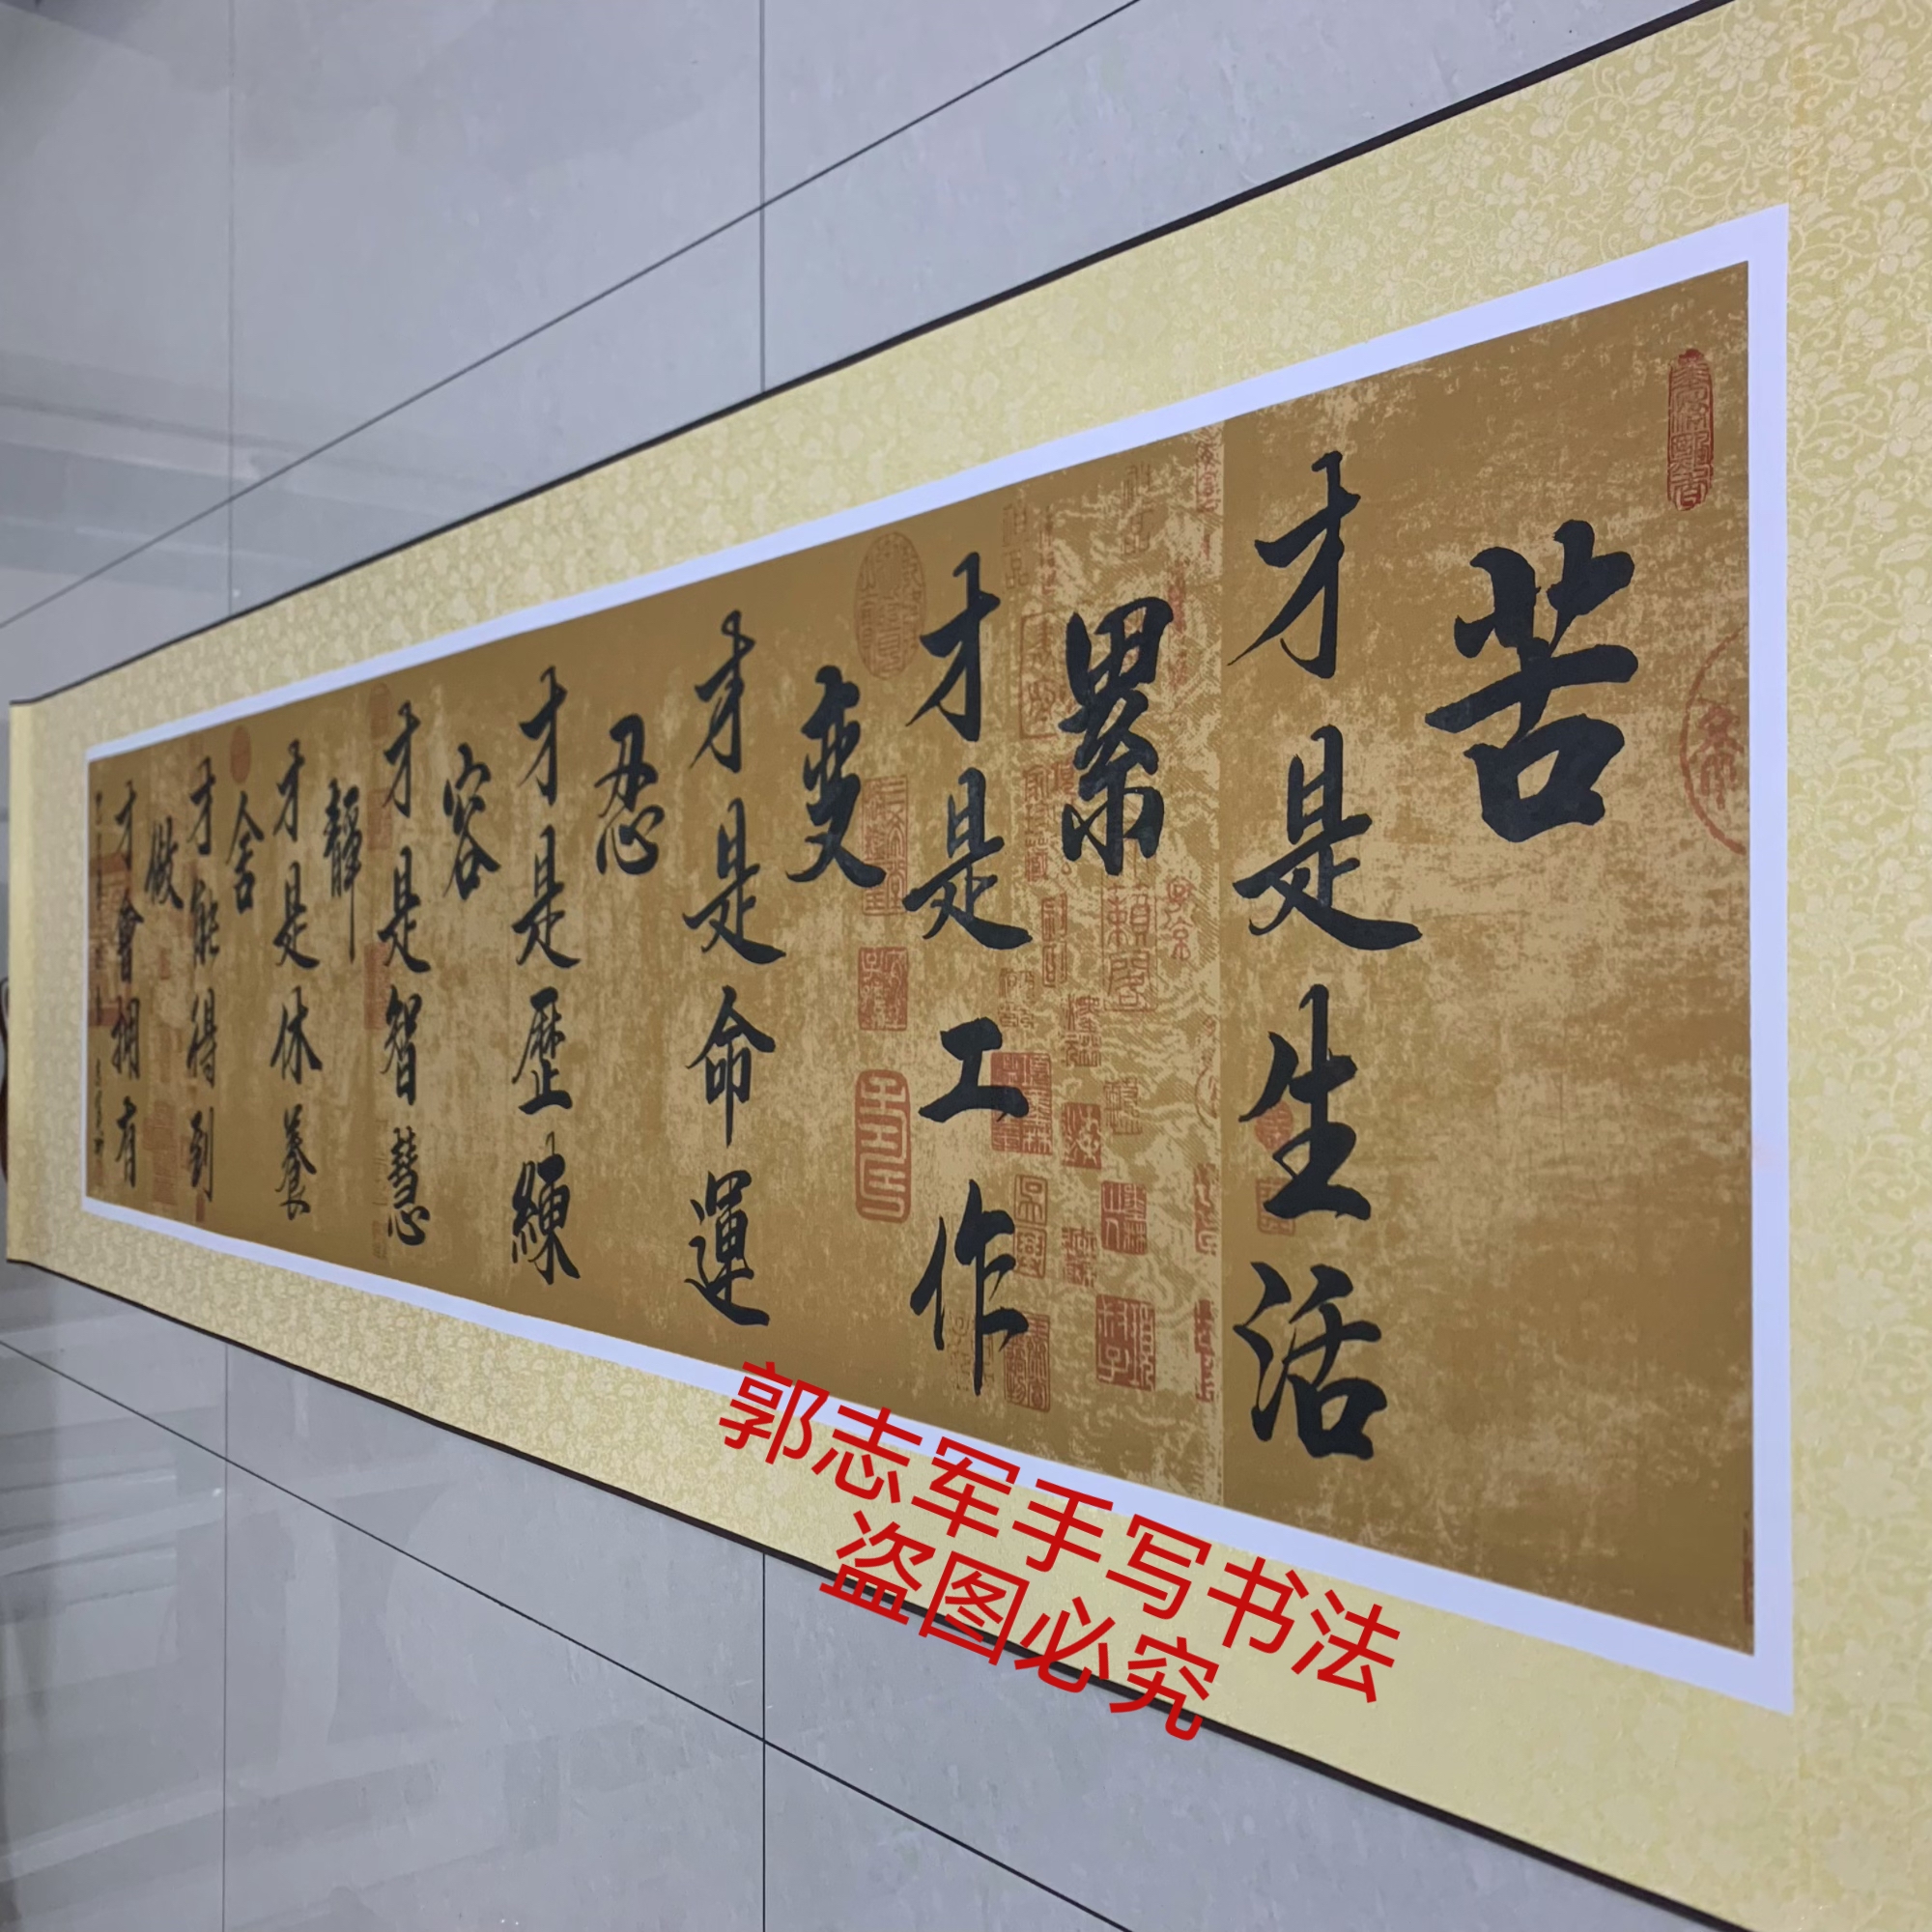 苦
才是生活
累
才是工作
变
才是命運
忍
才是歷練
容
才是智慧
靜
才是休養
舍
才能得到
做
才會拥有
郭志军手写书法
盗图必究